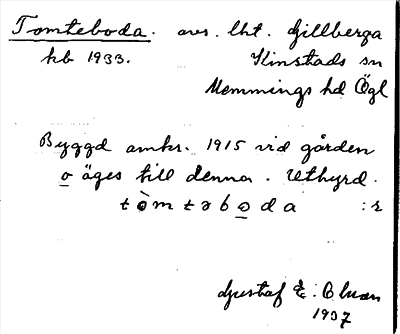 Tomteboda. avs. lht. Gillberga
hb 1933. Kimstads sn
Memmings hd Ögl
Byggd omkr. 1915 vid gården
o äges till denna. Uthyrd.
t ò m t ə b o d a :r
Gustaf E. Ohman
1937